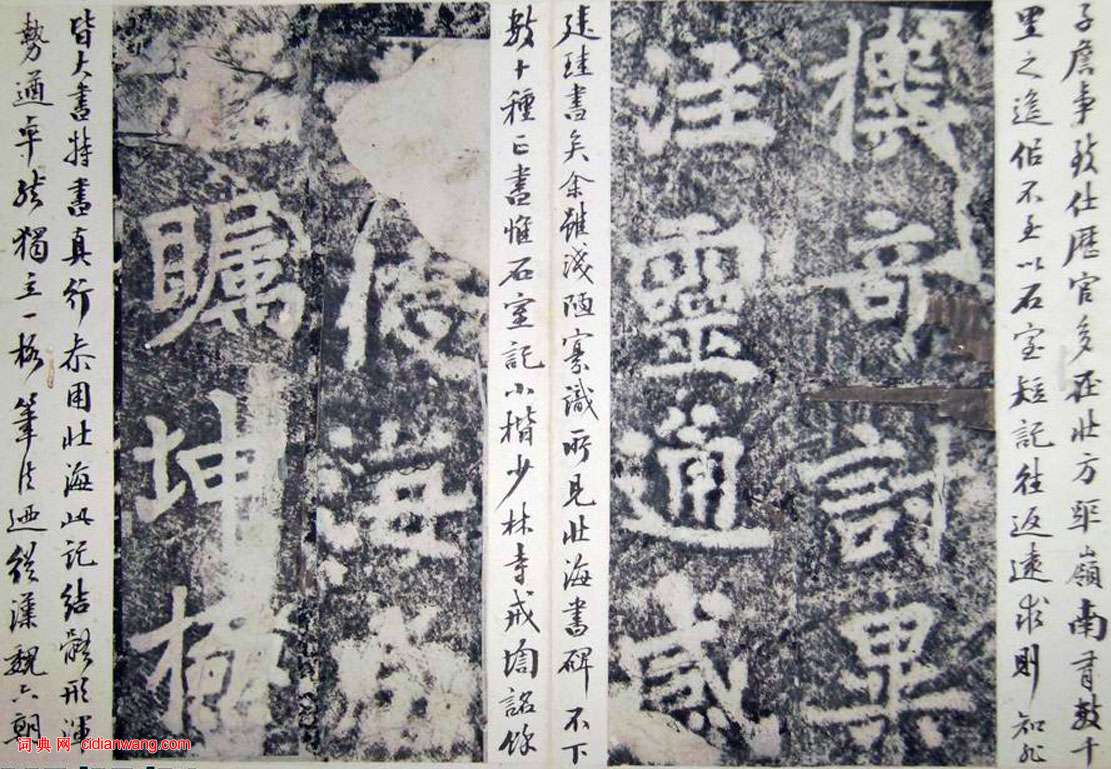 子詹事致仕歷官多在北方距嶺南有數千
里之遙似不至以石室短記往返遠求則知非
奇討
注靈通感
建珪書矣余雖淺陋寡識所見北海書碑不下
數十種正書惟石室記小楷少林寺戒壇銘餘
海
矚坤極
皆大書特書真行亦用北海此記結體形渾
勢遒卓然獨立一格筆法迺從漢魏六朝
词典网 cidianwang.com